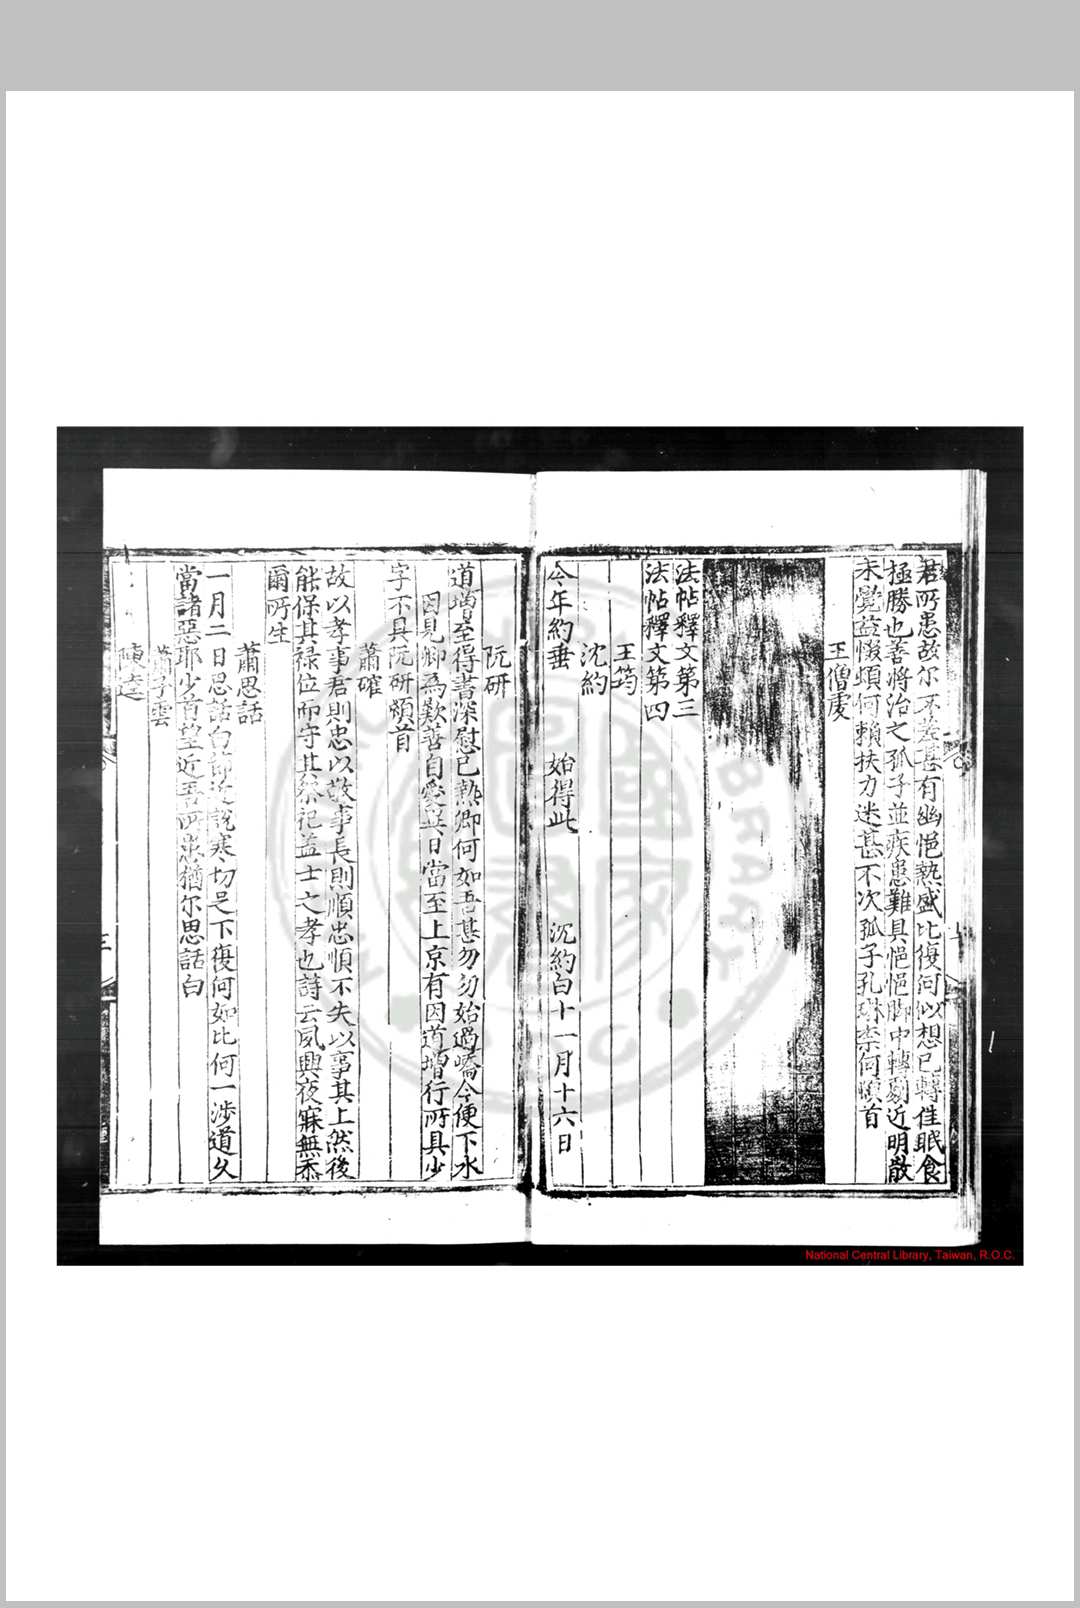 君所患故尔不差甚有幽悒熱盛比復何似想已轉佳眠食
極勝也善將治之孤子並疾患難具悒悒腳中轉劇近明散
未覺益惙煩何賴扶力迷甚不次孤子孔琳柰何頓首
王僧虔
法帖釋文第三
法帖釋文第四
王筠
沈約
今年約垂 始得此 沉約白十一月十六日
阮研
道增至得書深慰已熱卿何如吾甚勿勿始過嶠今便下水
因見卿為歎善自愛異日當至上京有因道增行所具少
字不具阮研頓首
蕭確
故以孝事君則忠以敬事長則順忠順不失以事其上然後
能保其祿位而守其祭祀蓋士之孝也詩云夙興夜寐無忝
爾所生
蕭思話
一月二日思話白節近說寒切足下復何如比何一涉道久
當諸惡耶少首望近吾所患猶尔思話白
蕭子雲
陳逵
三
National Central Library, Taiwan, R.O.C.